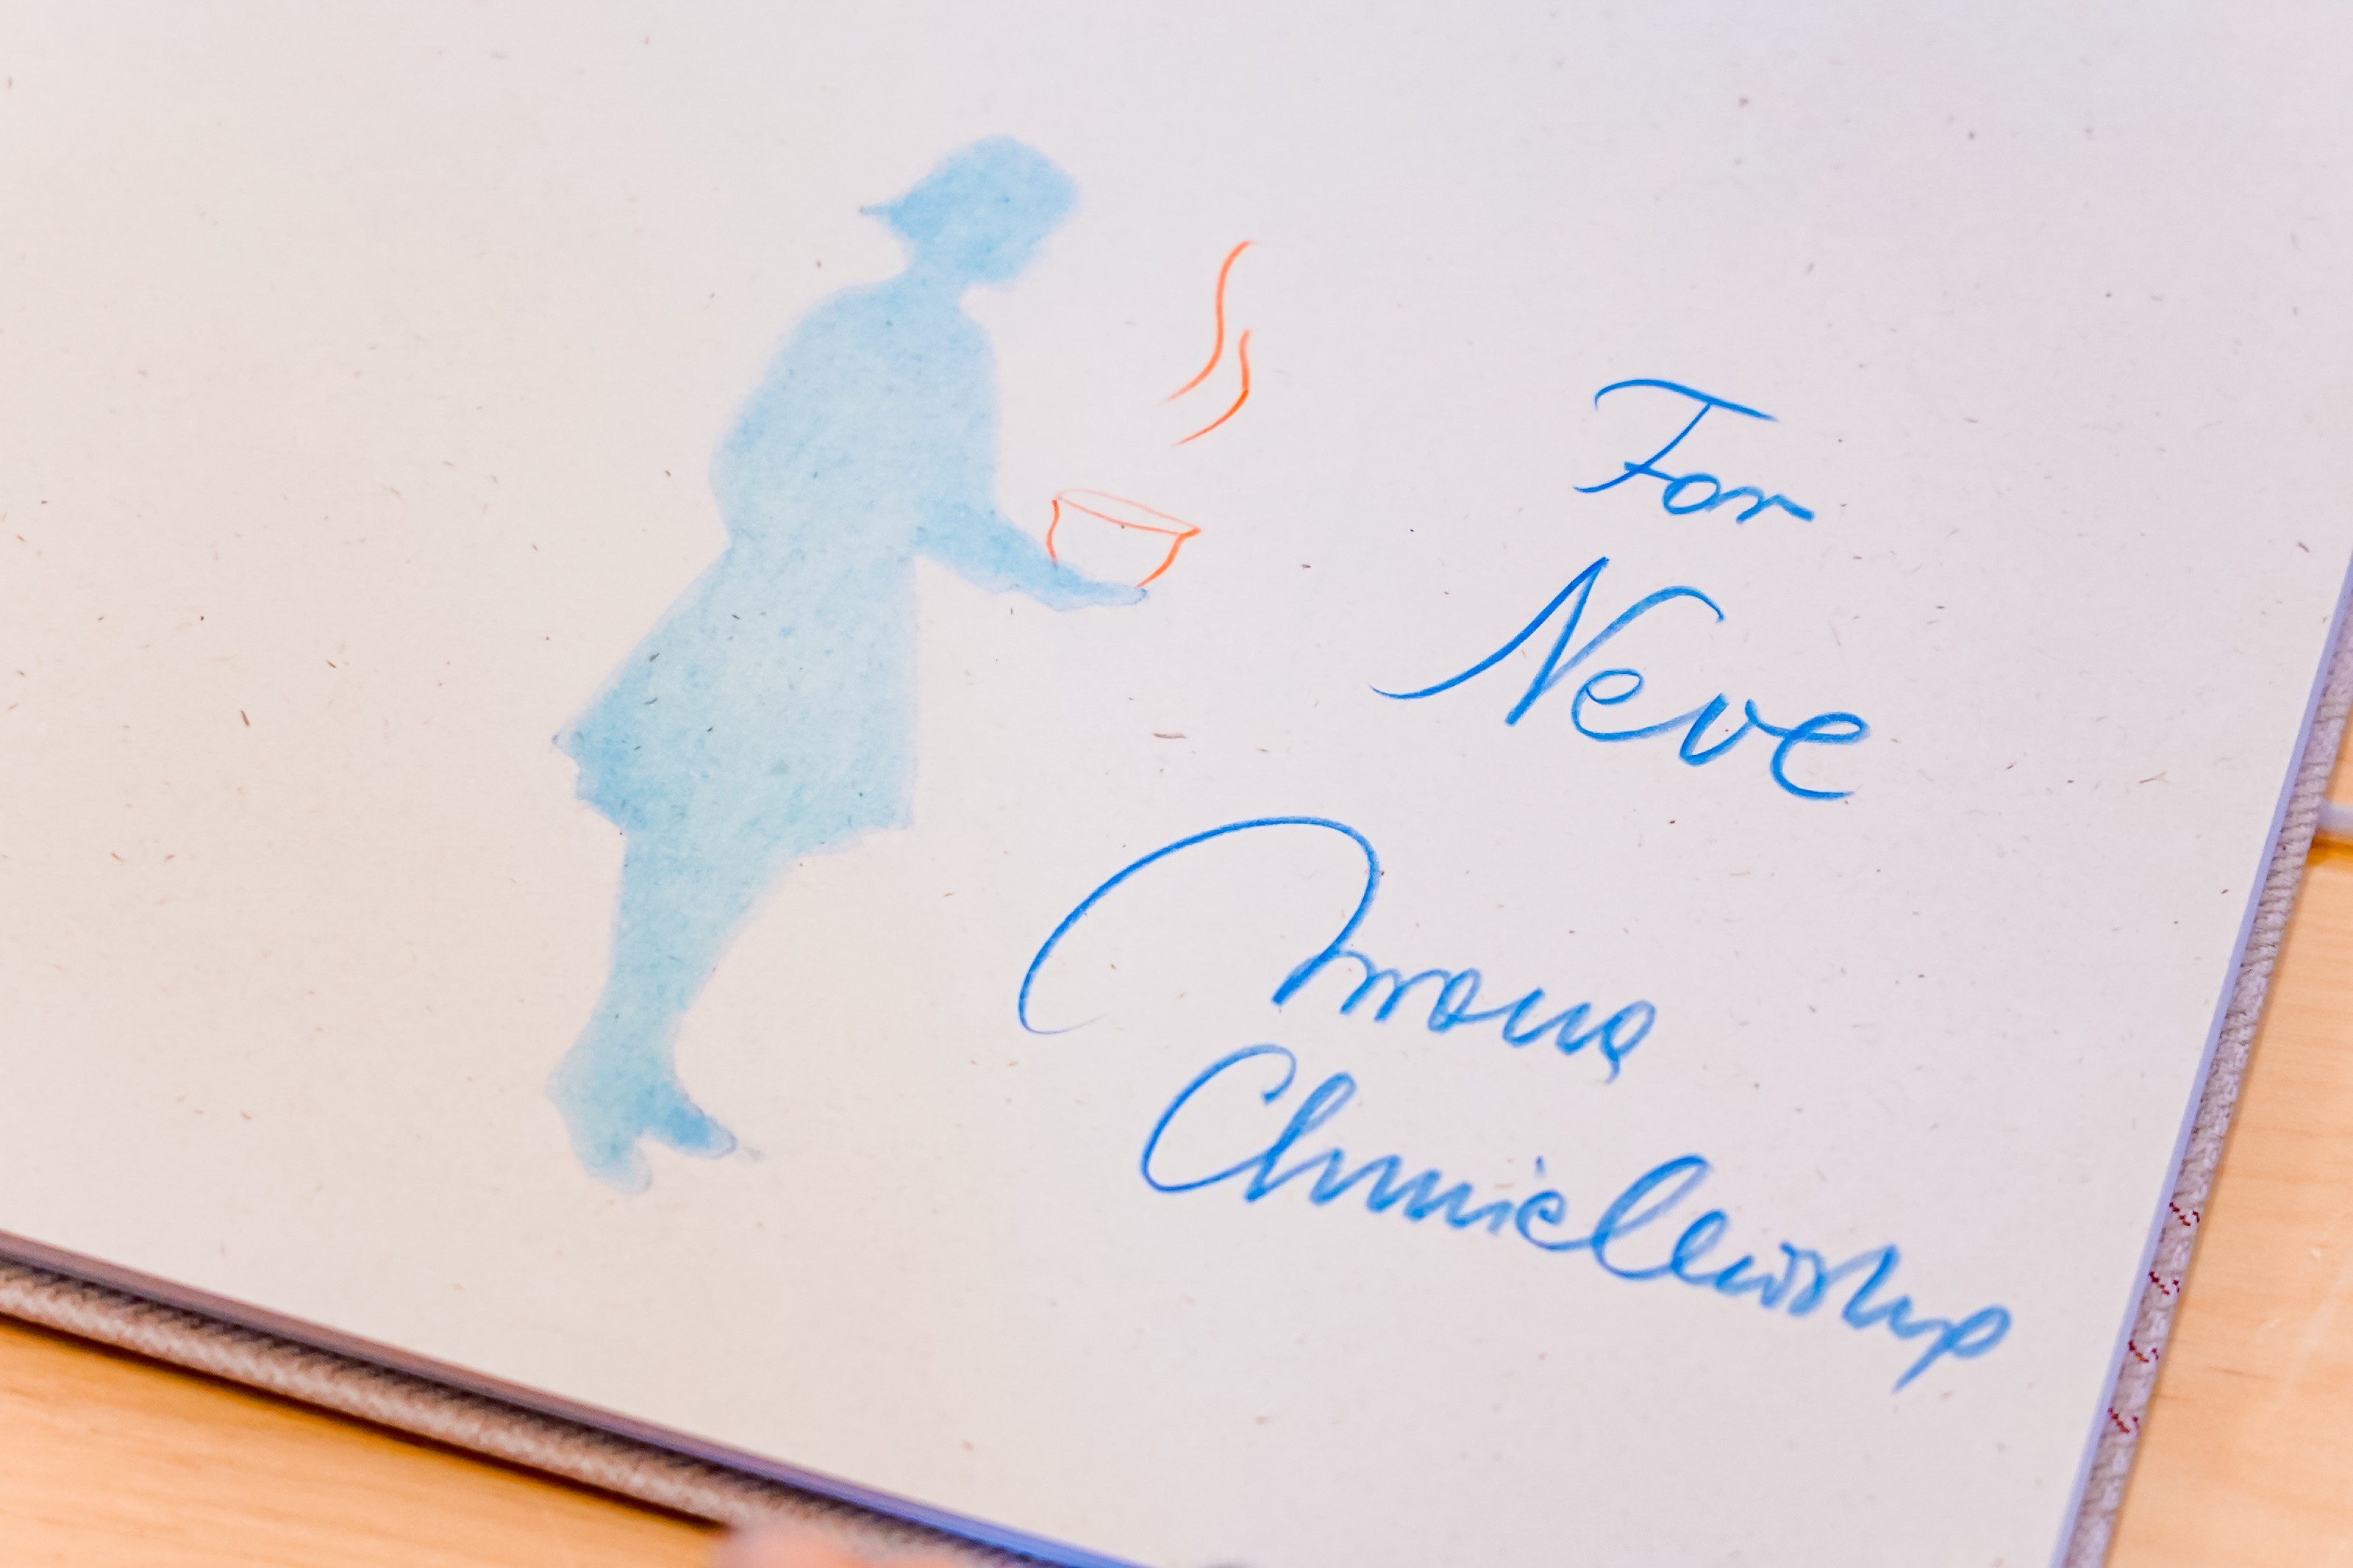 For
Neve
Iwona
Chmielewska